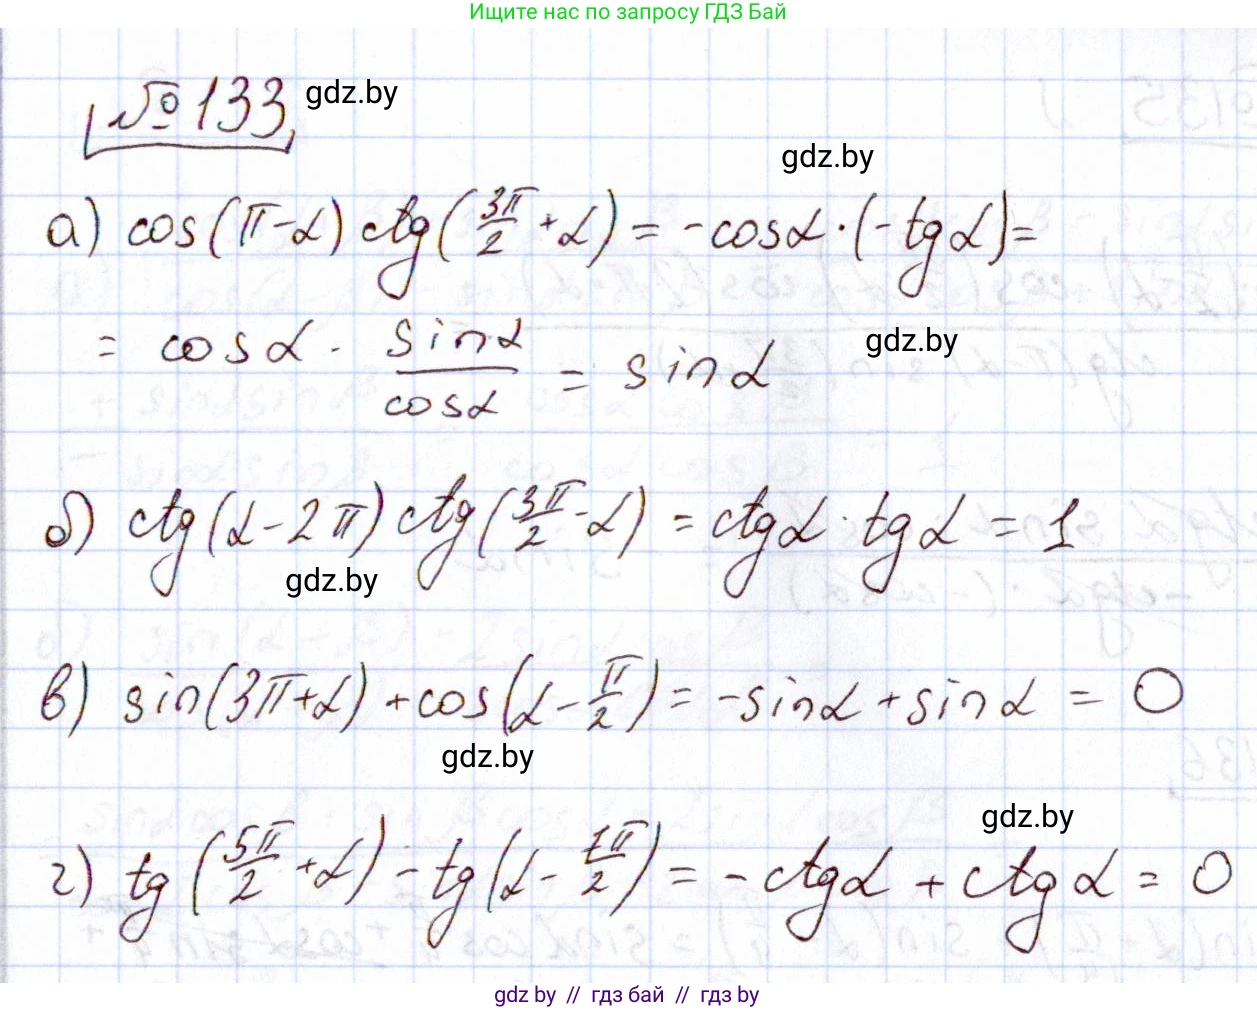 Ищите нас по запросу ГДЗ Бай
№133. gdz.by
gdz.by
а) cos(π-α) ctg(3π/2 + α) = -cosα·(-tgα)=
= cosα · sinα/cosα = sinα
gdz.by
б) ctg(α-2π) ctg(3π/2 - α) = ctgα·tgα = 1
gdz.by
в) sin(3π+α)+cos(α - π/2) = -sinα + sinα = 0
gdz.by
gdz.by
г) tg(5π/2 + α) - tg(α - π/2) = -ctgα + ctgα = 0
gdz by // гдз бай // гдз by